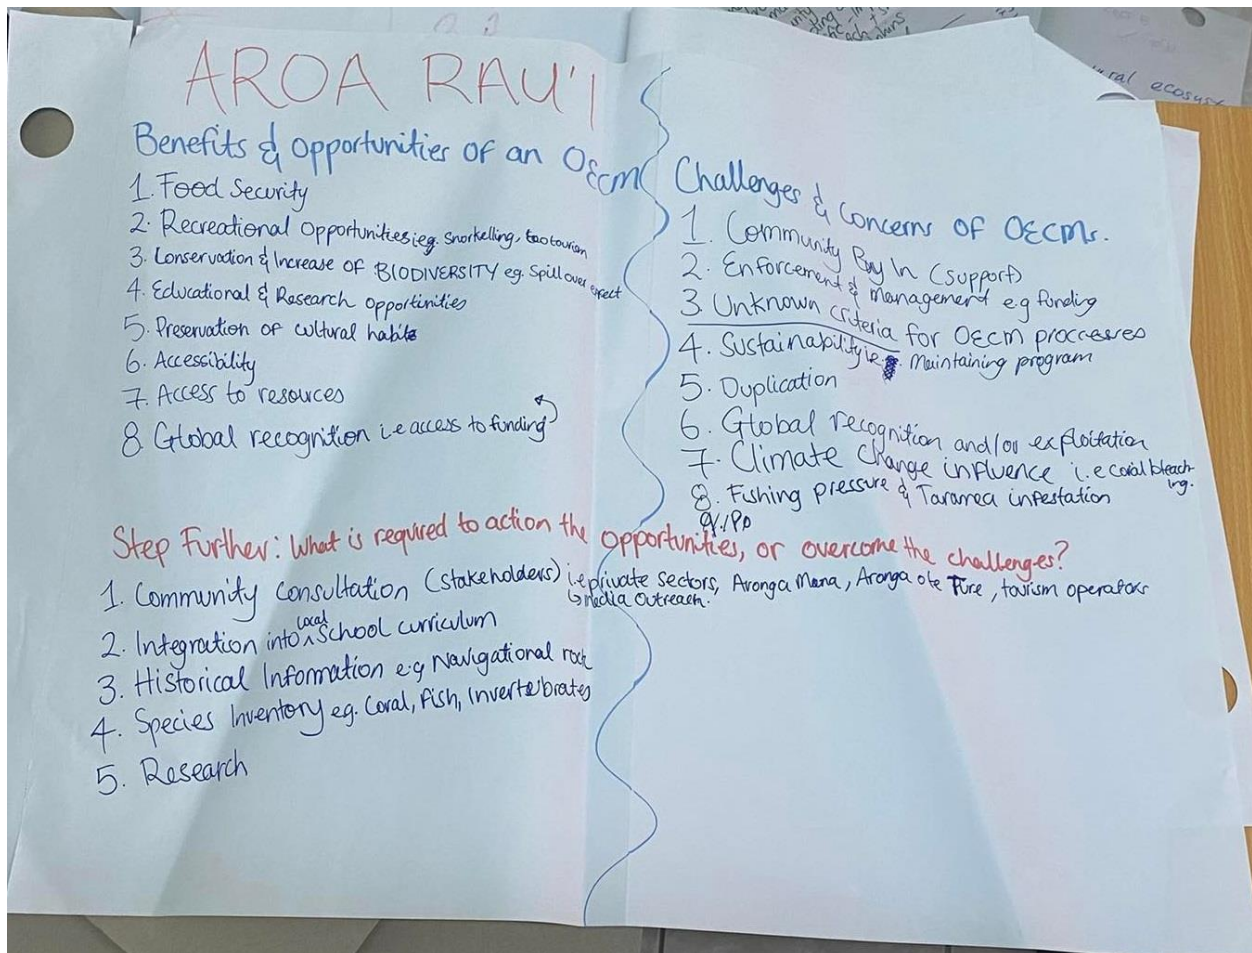 AROA RAU'I
Benefits & opportunities of an OECM
1. Food Security
2. Recreational Opportunities eg. Snorkelling, Ecotourism
3. Conservation & Increase of BIODIVERSITY eg. Spill over effect
4. Educational & Research opportinities
5. Preservation of cultural habits
6. Accessibility
7. Access to resources
8 Global recognition i.e access to funding
Challenges & Concerns of OECMs.
1. Community Buy In (support)
2. Enforcement & Management e.g funding
3. Unknown criteria for OECM proccesses
4. Sustainability i.e. Maintaining program
5. Duplication
6. Global recognition and/or exploitation
7. Climate Change influence i.e coral bleach-
ing.
8. Fishing pressure & Taramea infestation
Step Further: What is required to action the opportunities, or overcome the challenges?
1. Community Consultation (stakeholders) i.e private sectors, Aronga Mana, Aronga o te Ture, tourism operators
↳ media Outreach.
2. Integration into ^local School curriculum
3. Historical Information e.g Navigational rock
4. Species Inventory eg. Coral, Fish, Invertebrates
5. Research